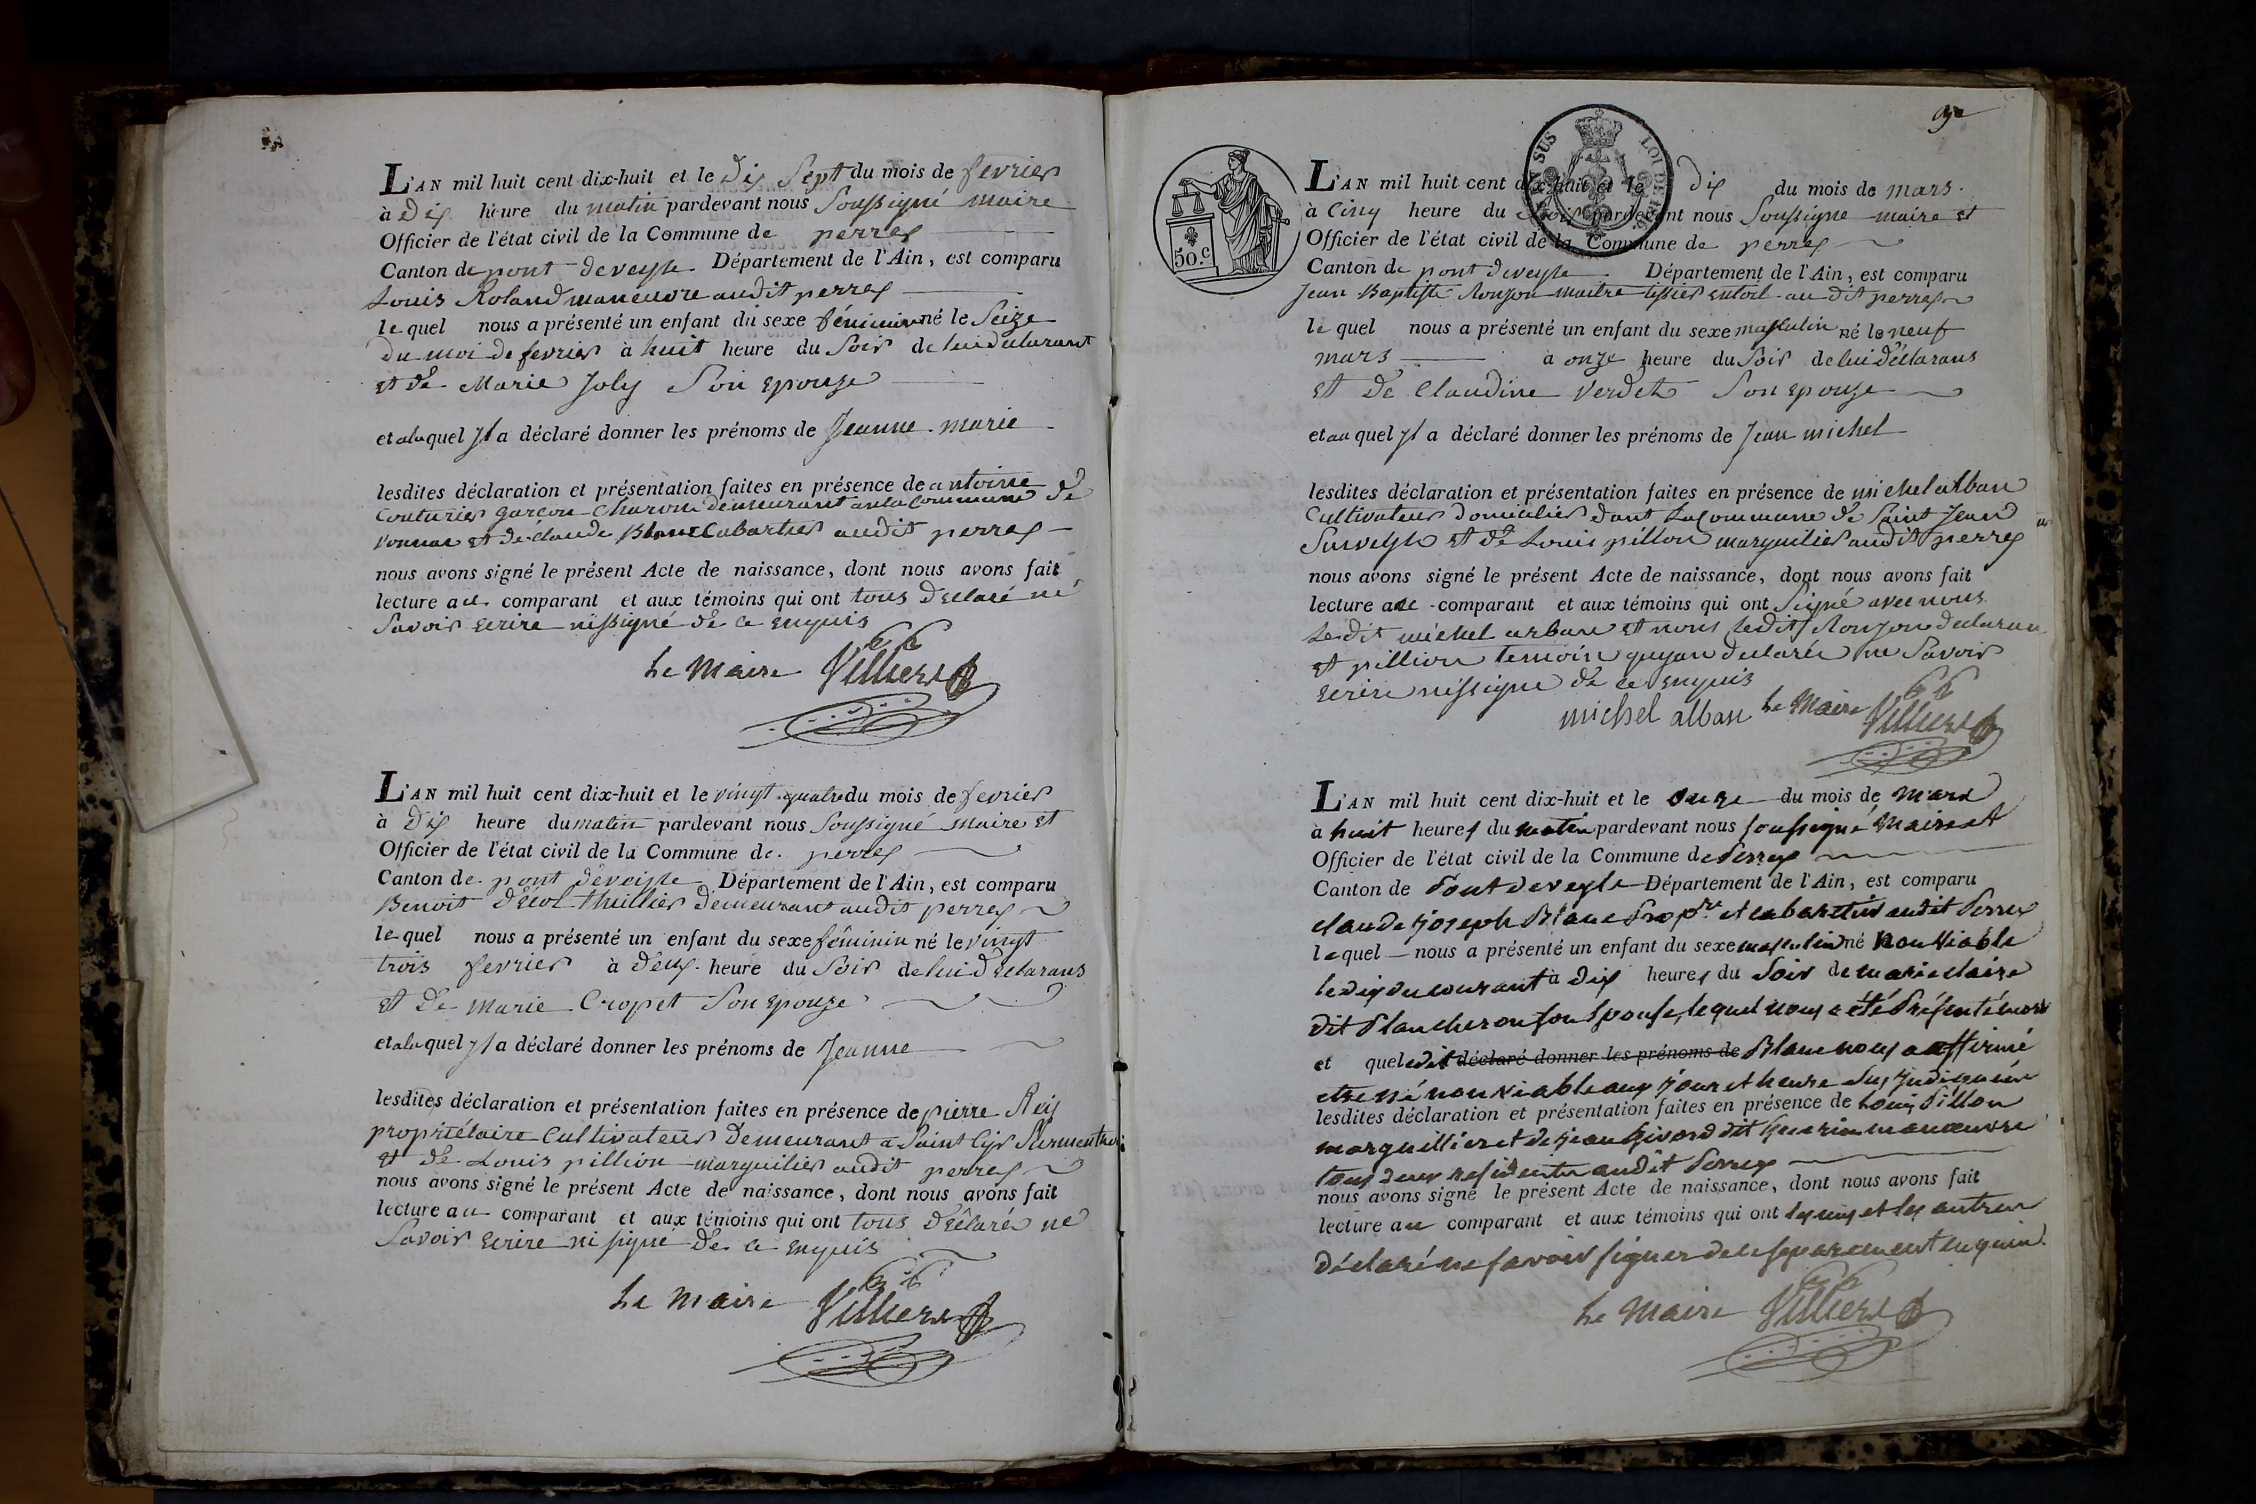 L'AN mil huit cent dix-huit et le dix Sept du mois de fevrier
à dix heure du matin pardevant nous Soussigné maire
Officier de l'état civil de la Commune de perrex
Canton de pont deveysle Département de l'Ain, est comparu
Louis Roland maneuvre audit perrex
le quel nous a présenté un enfant du sexe féminin né le Seize
du moi de fevrier à huit heure du Soir de lui déclarant
et de Marie Joly Son epouze
et alaquel yl a déclaré donner les prénoms de Jeanne. marie
lesdites déclaration et présentation faites en présence de antoine
Couturier garcon Charon demeurant anla Commune de
vonnas et de claude Blanc Cabartier audit perrex
nous avons signé le présent Acte de naissance, dont nous avons fait
lecture au comparant et aux témoins qui ont tous declaré ne
Savoir ecrire nissigné de ce enquis
Le Maire Villiers
L'AN mil huit cent dix-huit et le vingt quatre du mois de fevrier
à dix heure du matin pardevant nous Soussigné maire et
Officier de l'état civil de la Commune de perrex
Canton de pont deveisle Département de l'Ain, est comparu
Benoit thuillier demeurant audit perrex
le quel nous a présenté un enfant du sexe féminin né le vingt
trois fevrier à deux heure du Soir de lui declarans
et de marie Cropet Son epouze
et alaquel yl a déclaré donner les prénoms de Jeanne
lesdites déclaration et présentation faites en présence de pierre Rey
propriétaire Cultivateur demeurant a Saint Cyr Surmenthon
et de Louis pillion marguilier audit perrex
nous avons signé le présent Acte de naissance, dont nous avons fait
lecture au comparant et aux témoins qui ont tous déclaré ne
Savoir ecrire ni signé de ce enquis
Le Maire Villiers
50.c
SUS LOI DE 1816
L'AN mil huit cent dix-huit et le dix du mois de mars
à Cinq heure du Soir pardevant nous Soussigné maire et
Officier de l'état civil de la Commune de perrex
Canton de pont deveysle Département de l'Ain, est comparu
Jean Baptiste Ronjon maitre tissier entoil audit perrex
le quel nous a présenté un enfant du sexe masculin né le neuf
mars à onze heure du Soir de lui déclarans
et de Claudine Verdet Son epouze
et au quel yl a déclaré donner les prénoms de Jean michel
lesdites déclaration et présentation faites en présence de michel alban
Cultivateur domicilier dant La Commune de Saint Jean
Surveyle et de Louis pillon marguilier audit perrex
nous avons signé le présent Acte de naissance, dont nous avons fait
lecture au comparant et aux témoins qui ont Signé avec nous
Ledit michel arban et nont ledit Ronjon declaran
et pillion temoin quyon declarée ne Savoir
ecrire nissigne de ce enquis
michel alban Le Maire Villiers
L'AN mil huit cent dix-huit et le onze du mois de mars
à huit heures du matin pardevant nous soussigné Maire et
Officier de l'état civil de la Commune de Perrex
Canton de Pont de veyle Département de l'Ain, est comparu
claude Joseph Blanc Prop.re et cabartier audit Perrex
le quel nous a présenté un enfant du sexe masculin né non viable
le dix du courant à dix heures du Soir de marie claire
dit Plancheron son Epouse, lequel nous a été Présenté mort
et quel edit déclaré donner les prénoms de Blanc nous a affirmé
etre né non viable aux jour et heure sus Indiquées
lesdites déclaration et présentation faites en présence de Louis Pillon
marguillier et de jean Givord dit manœuvre
tous deux residents audit Perrex
nous avons signé le présent Acte de naissance, dont nous avons fait
lecture au comparant et aux témoins qui ont les uns et les autres
déclaré ne savoir signer de ce separement enquis.
Le Maire Villiers